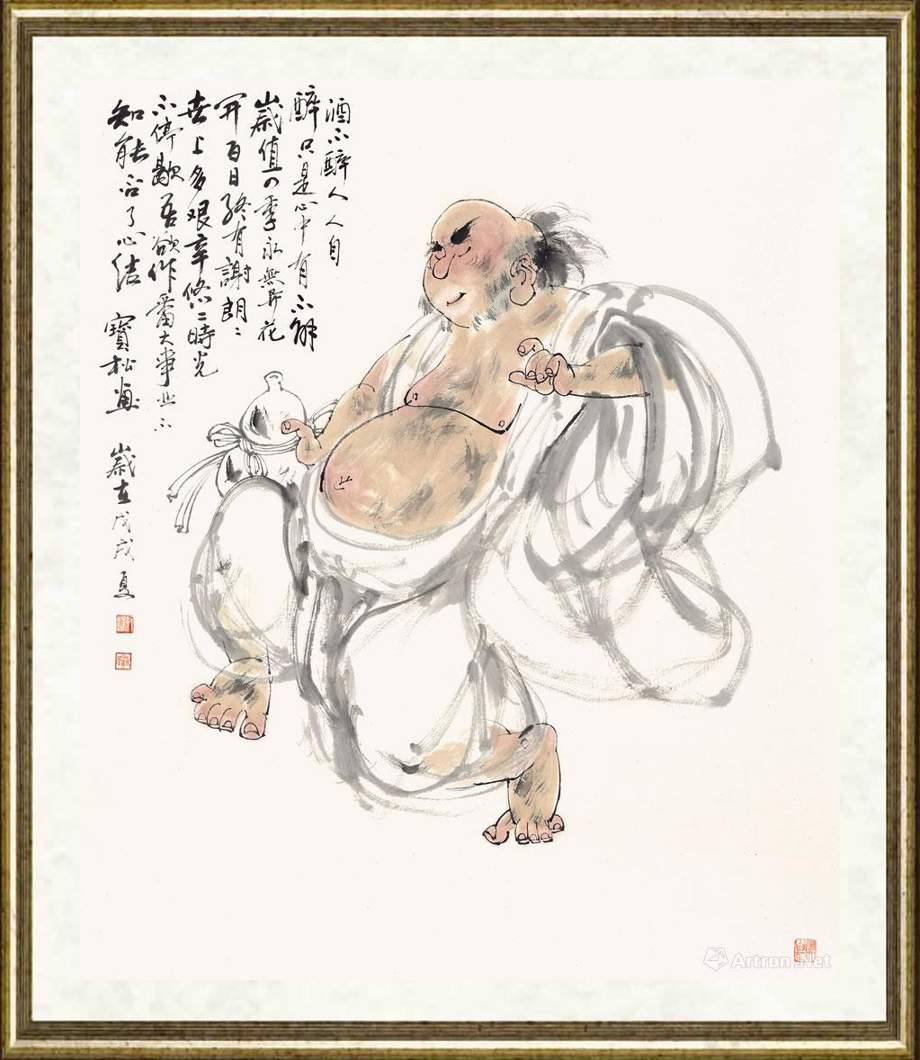 酒不醉人人自
醉只是心中有不解
歲值四季永無異花
开百日終有謝朗〻
世上多艰辛悠〻時光
不停歇吾欲作番大事业不
知能否了心结 寶松画 歲在戊戌夏
Artron.Net